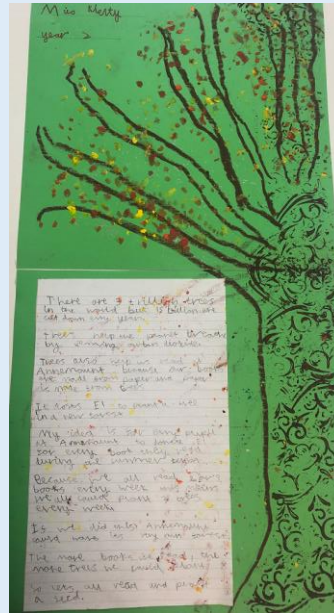 Miss Kelly
year 2
There are 3 trillion trees
in the world but 15 billion are
cut down every year.
Trees help the planet breathe
by removing carbon dioxide.
Trees also help us read at
Annemount because our books
are made from paper and paper
is made from trees.
It costs £1 to plant a tree
in a new forest
My idea is for every pupil
at Annemount to
for every book they read
during the summer
Because we all read
books every week
we could plant
every week.
If we did this Annemount
could have its very own forest.
The more books we read, the
more trees we could plant.
So lets all read and plant
a seed.